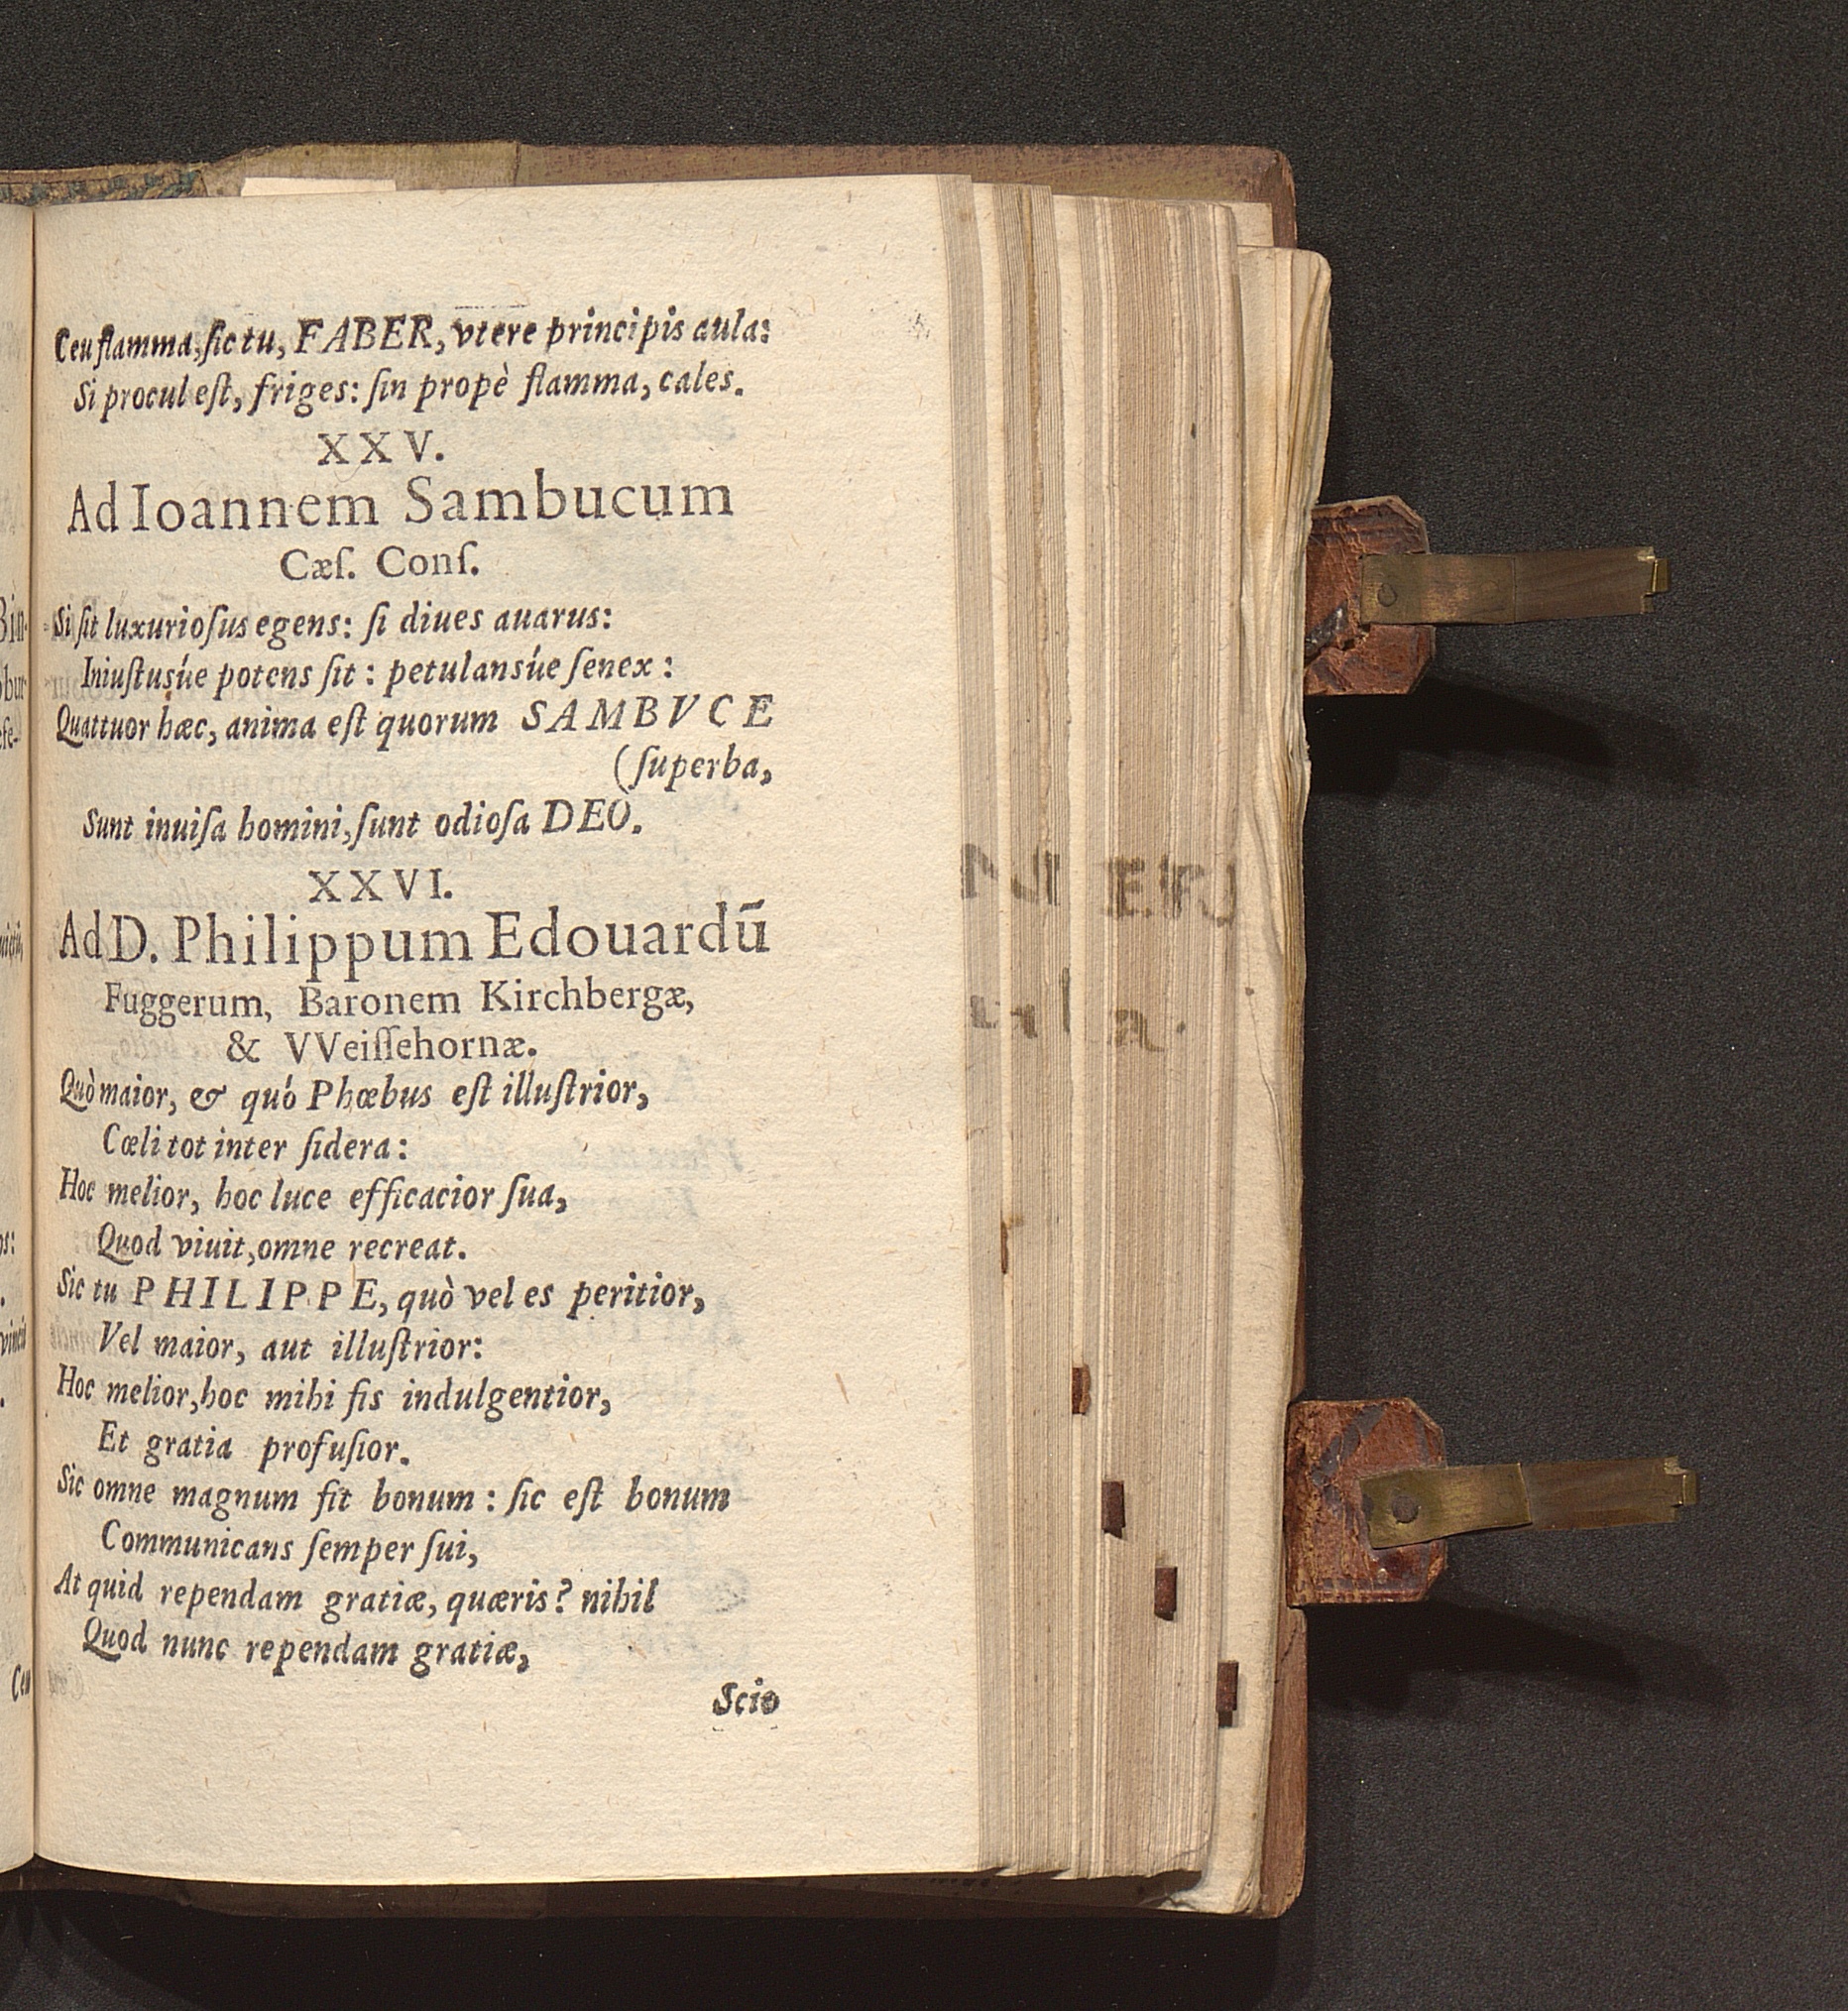 Ceu flamma, ſic tu, FABER, vtere principis aula:
Si procul eſt, friges: ſin propè flamma, cales.
XXV.
Ad Ioannem Sambucum
Cæſ. Conſ.
Si ſit luxurioſus egens: ſi diues auarus:
Iniuſtusúe potens ſit: petulansúe ſenex:
Quattuor hæc, anima eſt quorum SAMBVCE
(ſuperba,
Sunt inuiſa homini, ſunt odioſa DEO.
XXVI.
Ad D. Philippum Edouardū
Fuggerum, Baronem Kirchbergæ,
& VVeiſſehornæ.
Quò maior, & quó Phœbus eſt illuſtrior,
Cœli tot inter ſidera:
Hoc melior, hoc luce efficacior ſua,
Quod viuit, omne recreat.
Sic tu PHILIPPE, quò vel es peritior,
Vel maior, aut illuſtrior:
Hoc melior, hoc mihi fis indulgentior,
Et gratia profuſior.
Sic omne magnum fit bonum: ſic eſt bonum
Communicans ſemper ſui,
At quid rependam gratiæ, quæris? nihil
Quod nunc rependam gratiæ,
Scio